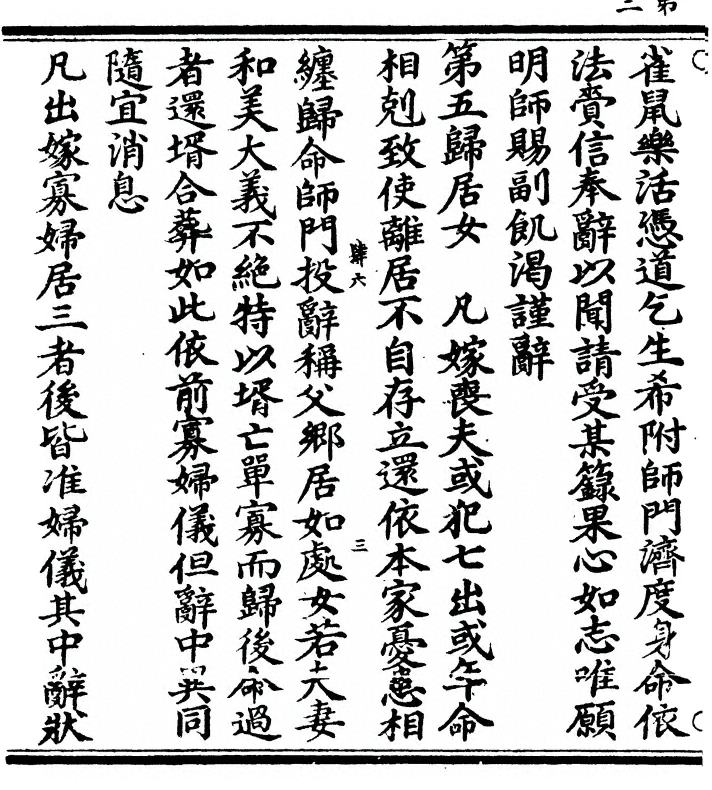 雀鼠樂活憑道乞生希附師門濟度身命依
法賷信奉辭以聞請受某籙果心如志唯願
明師賜副飢渴謹辭
第五歸居女　凡嫁喪夫或犯七出或年命
相剋致使離居不自存立還依本家憂患相
纏歸命師門投辭稱父鄉居如處女若夫妻
肆六
三
和美大義不絕特以壻亡單寡而歸後命過
者還壻合葬如此依前寡婦儀但辭中異同
隨宜消息
凡出嫁寡婦居三者後皆准婦儀其中辭狀